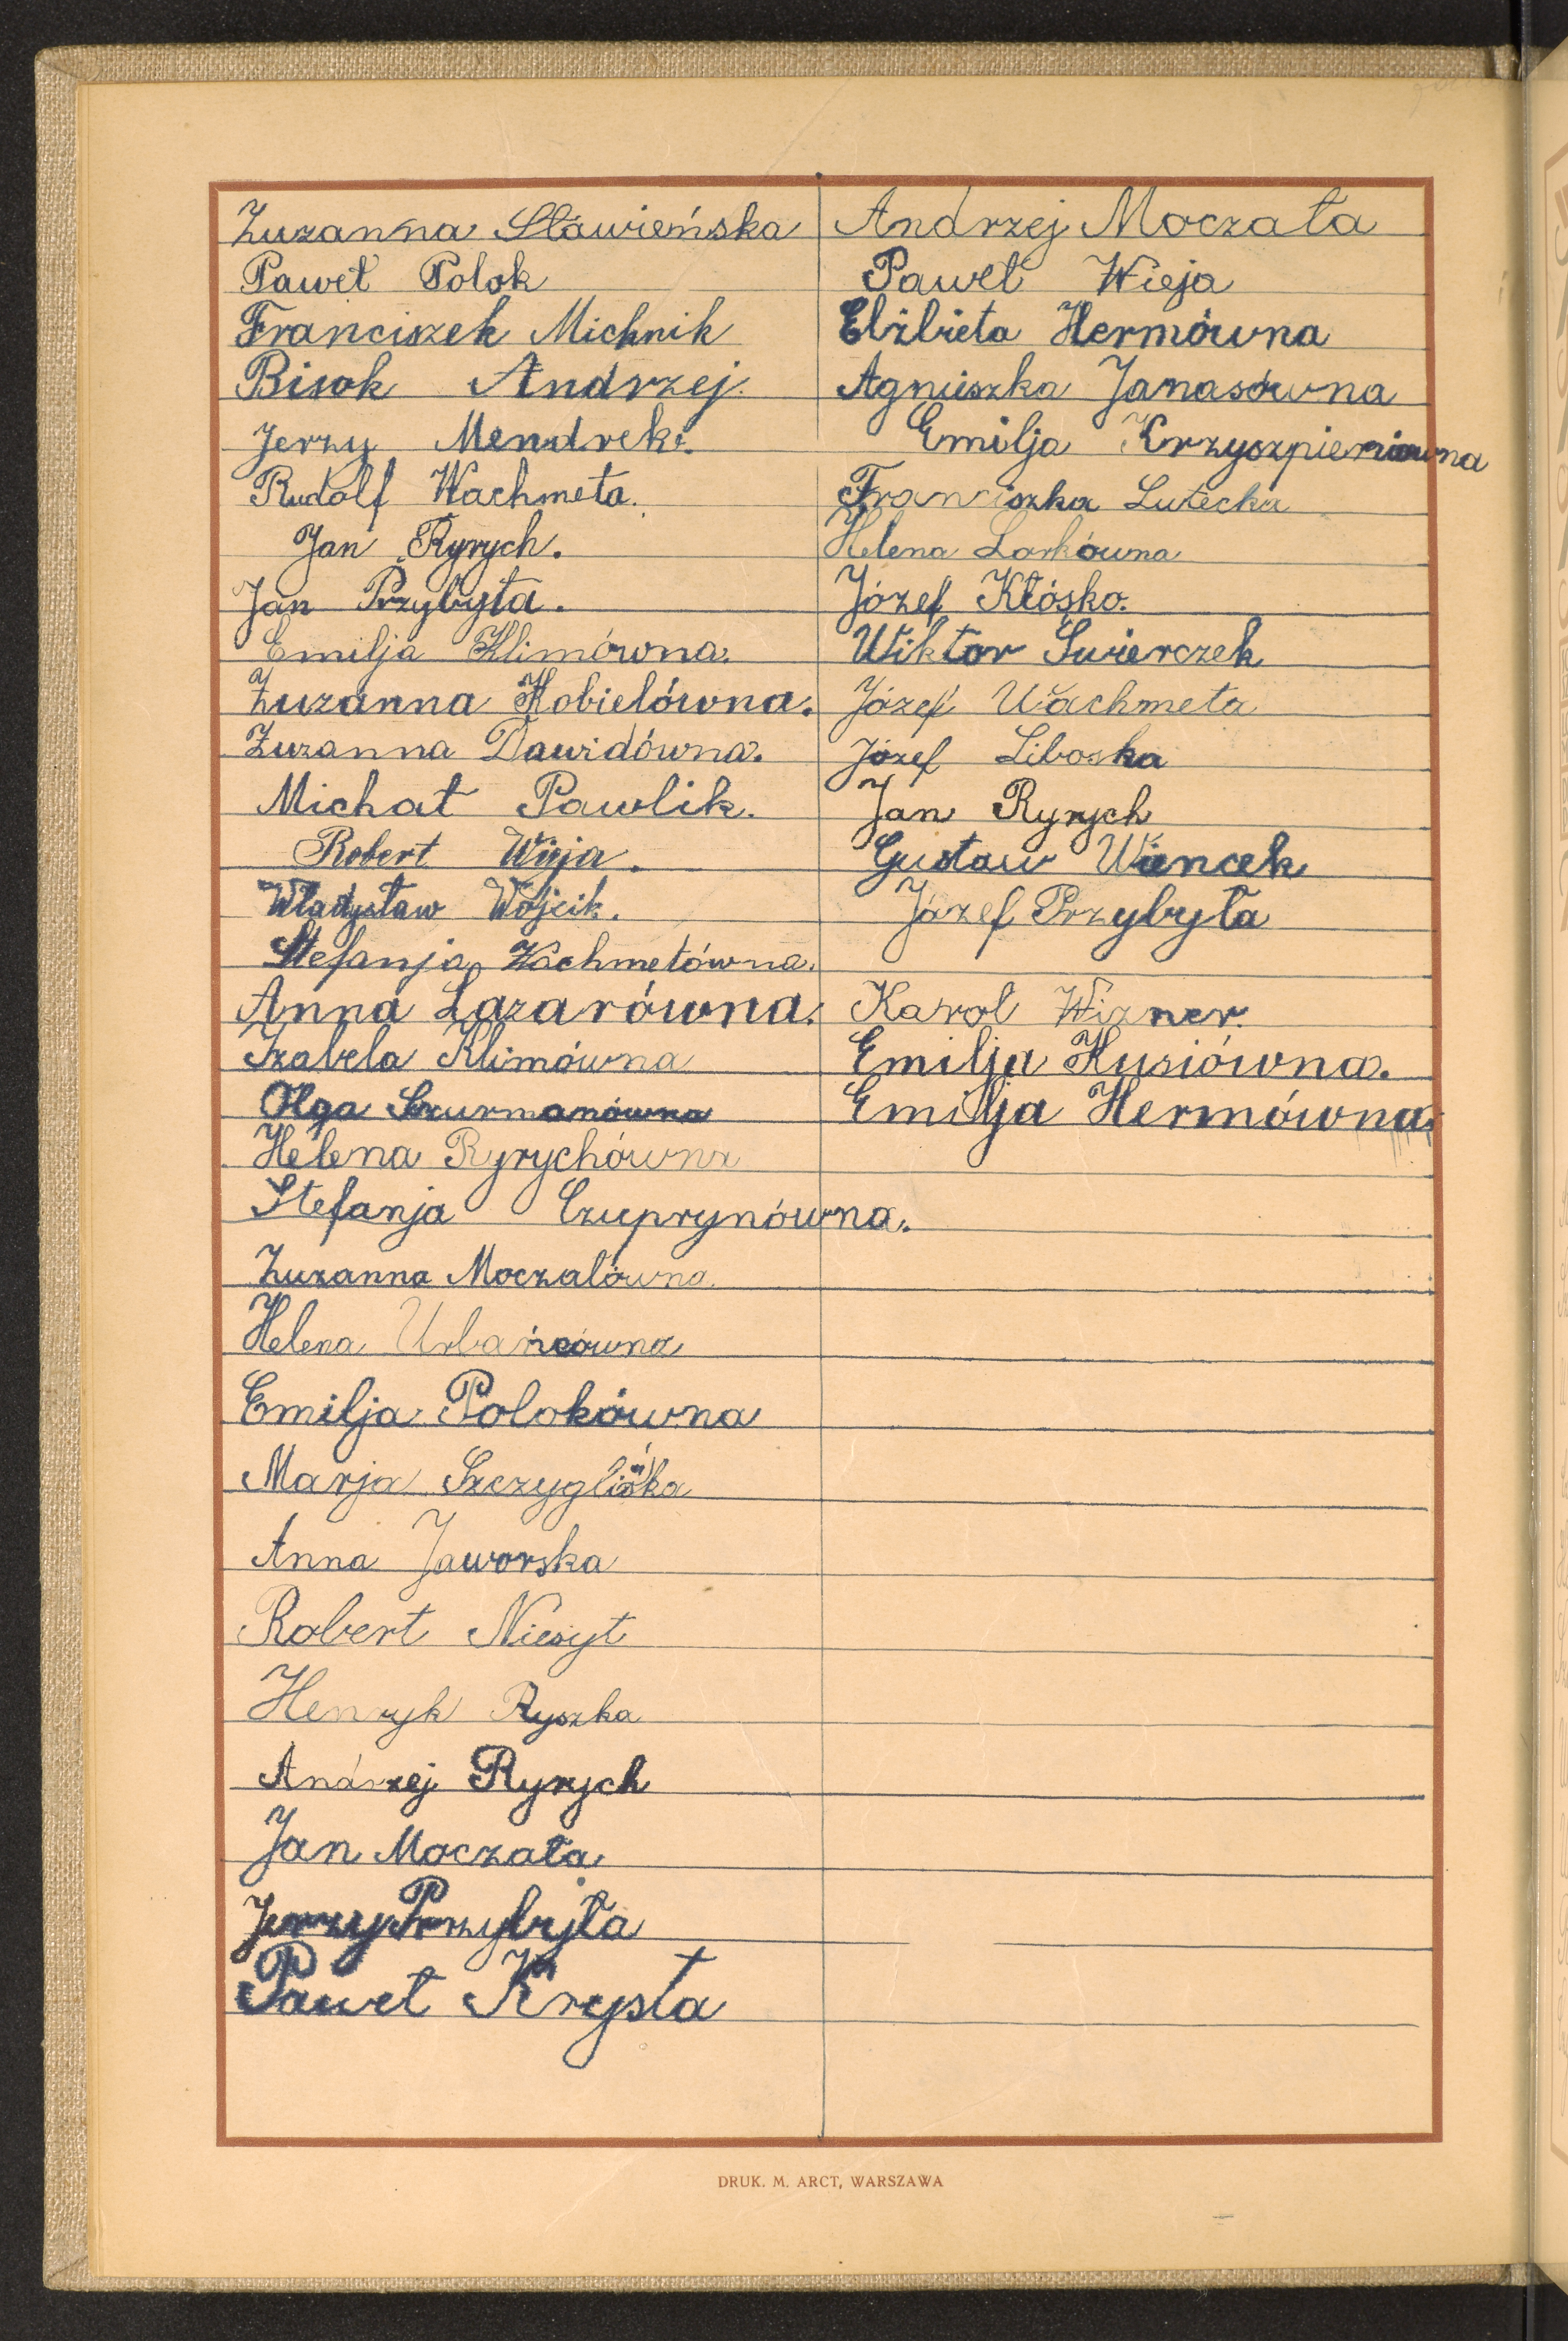 Zuzanna Sławieńska
Paweł Polok
Franciszek Michnik
Bisok Andrzej.
Jerzy Mendrek.
Rudolf Wachmeta.
Jan Ryrych.
Jan Przybyła.
Emilja Klimówna.
Zuzanna Kobielówna.
Zuzanna Dawidówna.
Michał Pawlik.
Robert Wieja.
Władysław Wójcik.
Stefanja Wachmetówna.
Anna Lazarówna.
Izabela Klimówna
Olga Szurmanówna
Helena Ryrychówna
Stefanja Czuprynówna.
Zuzanna Moczałówna.
Helena Urbańcówna
Emilja Polokówna
Marja Szczyglińska
Anna Jaworska
Robert Niesyt
Henryk Ryszka
Andrzej Ryrych
Jan Moczała
Jerzy Przybyła
Paweł Krysta
Andrzej Moczała
Paweł Wieja
Elżbieta Hermówna
Agnieszka Janasówna
Emilja Krzyszpieniówna
Franciszka Lutecka
Helena Lorkówna
Józef Kłósko.
Wiktor Świerczek
Józef Wachmeta
Józef Liboska
Jan Ryrych
Gustaw Wancek
Józef Przybyła
Karol Wizner.
Emilja Husiówna.
Emilja Hermówna.
DRUK. M. ARCT, WARSZAWA